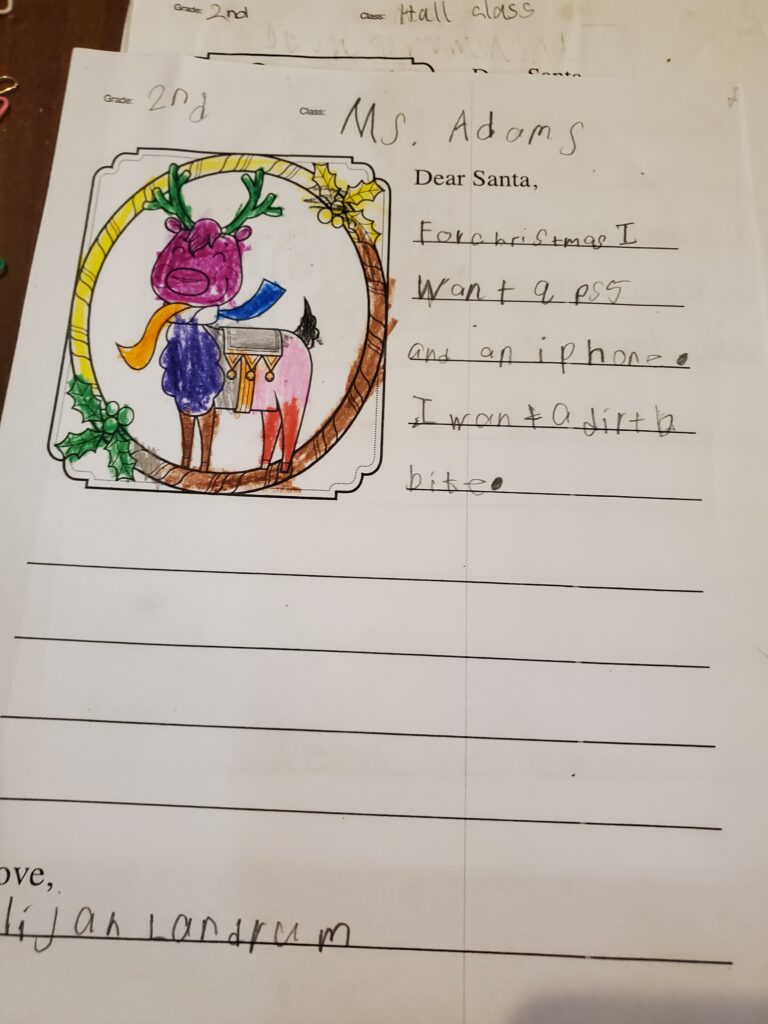 Grade: 2nd Class: Hall class
Grade: 2nd Class: Ms. Adams
Dear Santa,
For christmas I
Want a ps5
and an iphone.
I want a dirt b
bike.
ove,
lijah Landrum